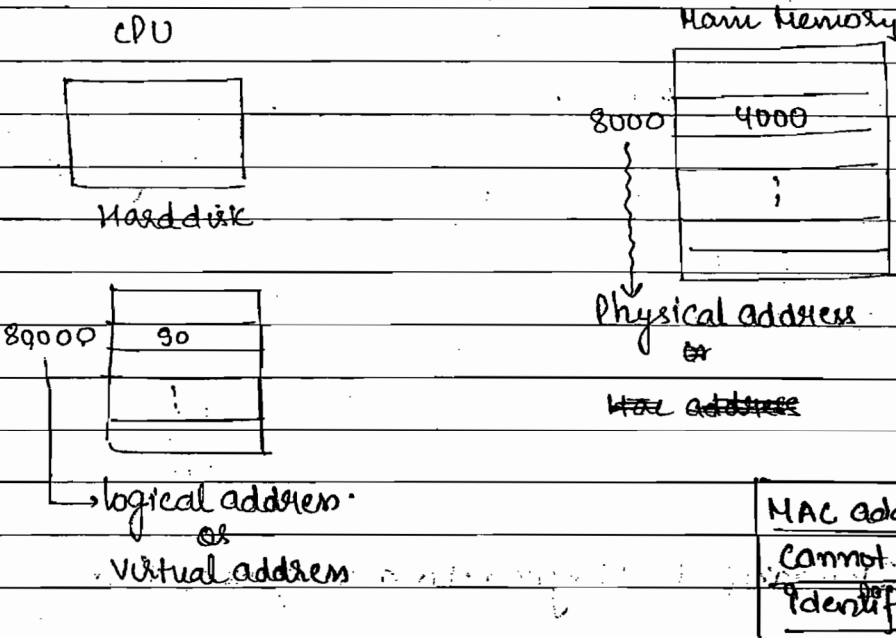 CPU
Main Memory
8000 4000
Harddisk
Physical address
or
address
89000 90
logical address.
or
Virtual address
MAC add
cannot
Identif